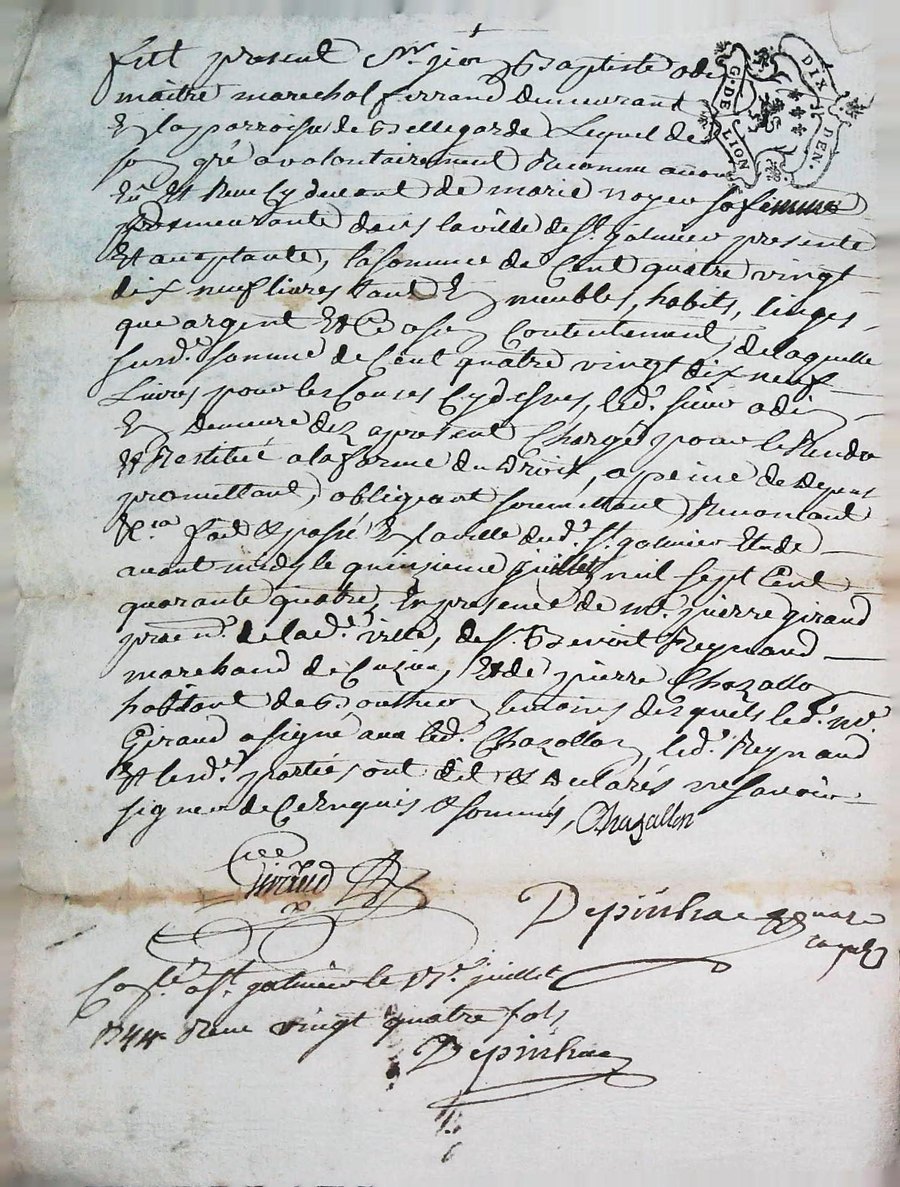 G. DE LION DIX DEN.
fut present Sr. jean Baptiste odi
maitre marechal ferrand demeurant
En la parroisse de Bellegarde Lequel de
son gré a volontairement Reconnu avoir
Eu Et Receu Cy devant de marie noyer sa femme
demeurante dans la ville de St. galmier presente
Et acceptante, la somme de Cent quatre vingt
dix neuf livres tant En meubles, habits, linges
que argent Et a son Contentement de laquelle
susd.e somme de Cent quatre vingt dix neuf
Livres pour les Causes Cy desses, led. sieur odi
En demeure dez apresent Chargé pour le Rendre
Et Restitué a la forme du Droit, a peine de Depens
promettant, obligeant soumettant Renonçant
&ca. fait & passé En la ville dud. St. galmier Etude
avant midy le quinzieme juillet mil sept Cent
quarante quatre, En presence de me. pierre girand
de lad.e ville, de Sr. Benoit Reynaud
marchand de Cuzieu, Et de pierre Chazallon
habitant de Bouthéon temoins desquels led. me.
Giraud a signé avec led. Chazollon, led. Reynaud
Et lesd. parties ont dit & Declarés ne savoir
signer de Ce Enquis & sommés, Chazallon
Giraud
Depinhac
Con.lé a St. galmier le 17e juillet
1744 Receu vingt quatre sols
Depinhac